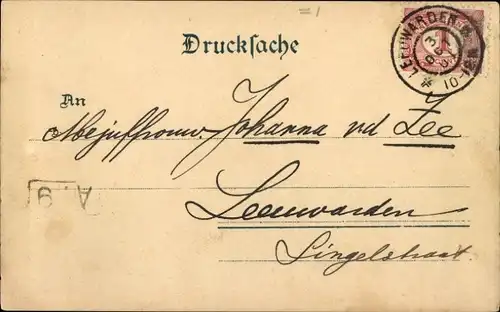 Drucksache
LEEUWARDEN
1
10-12
An
Mejuffrouw. Johanna v.d Zee
A.9
Leeuwarden
Singelstraat.